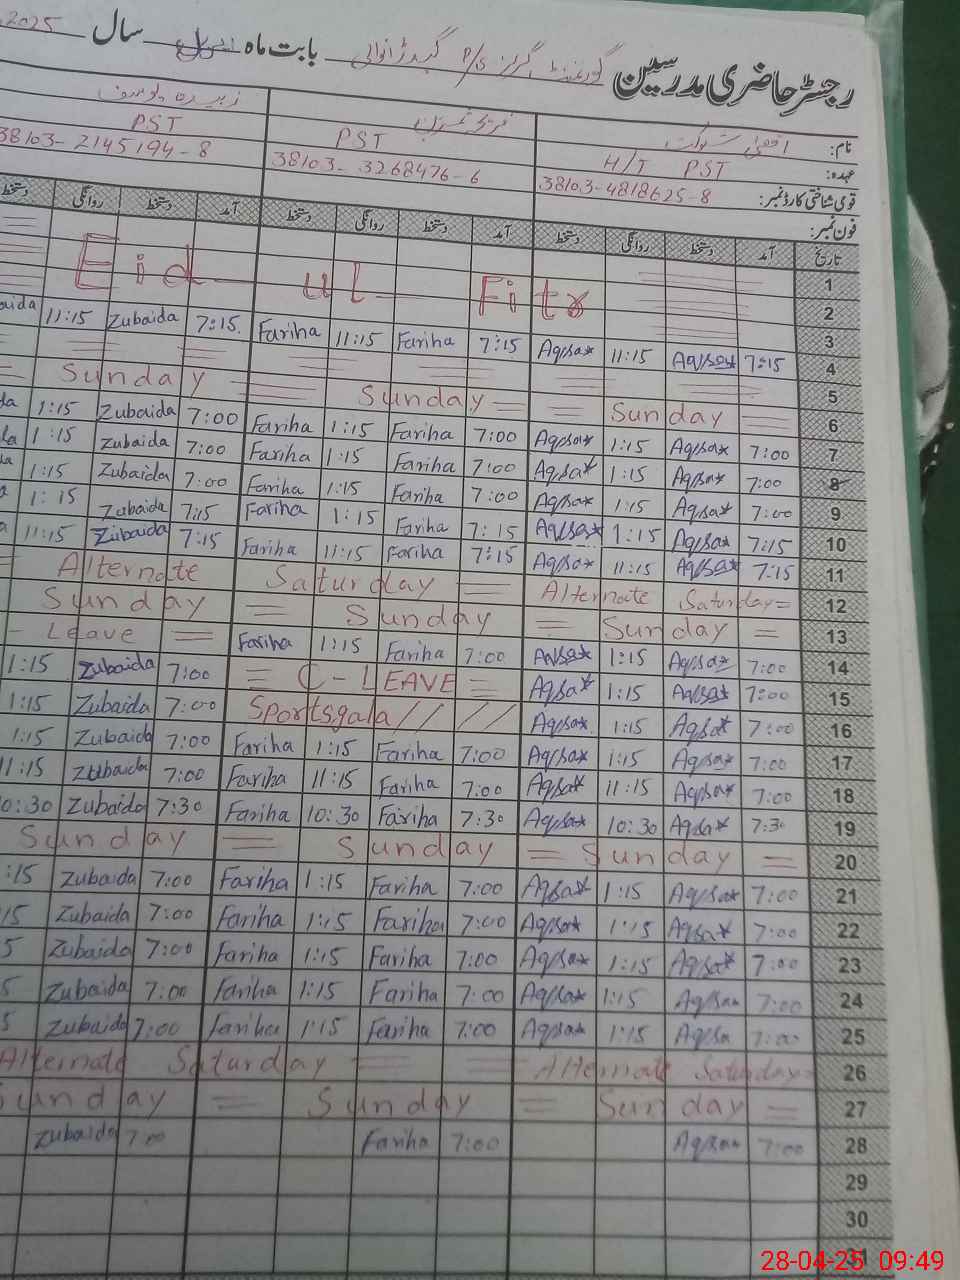 رجسٹر حاضری مدرسین گورنمنٹ گرلز P/S گیدڑانوالی بابت ماہ اپریل سال 2025
نام: اقصیٰ شوکت زبیدہ یوسف
عہدہ: H/T PST PST PST
قومی شناختی کارڈ نمبر: 38103-4818625-8 38103-3268476-6 38103-2145194-8
فون نمبر:
تاریخ آمد دستخط روانگی دستخط آمد دستخط روانگی دستخط آمد دستخط روانگی دستخط
1
2
Eid ul Fitr
3
11:15 Zubaida 7:15 Fariha 11:15 Fariha 7:15 Aqsa* 11:15 Aqsa* 7:15 4
5
Sunday Sunday Sunday 6
1:15 Zubaida 7:00 Fariha 1:15 Fariha 7:00 Aqsa* 1:15 Aqsa* 7:00 7
1:15 Zubaida 7:00 Fariha 1:15 Fariha 7:00 Aqsa* 1:15 Aqsa* 7:00 8
1:15 Zubaida 7:00 Fariha 1:15 Fariha 7:00 Aqsa* 1:15 Aqsa* 7:00 9
1:15 Zubaida 7:15 Fariha 1:15 Fariha 7:15 Aqsa* 1:15 Aqsa* 7:15 10
11:15 Zubaida 7:15 Fariha 11:15 Fariha 7:15 Aqsa* 11:15 Aqsa* 7:15 11
Alternate Saturday = Alternate Saturday = 12
Sunday = Sunday = Sunday = 13
- Leave = Fariha 1:15 Fariha 7:00 Aqsa* 1:15 Aqsa* 7:00 14
1:15 Zubaida 7:00 = C-LEAVE = Aqsa* 1:15 Aqsa* 7:00 15
1:15 Zubaida 7:00 Sportsgala //// Aqsa* 1:15 Aqsa* 7:00 16
1:15 Zubaida 7:00 Fariha 1:15 Fariha 7:00 Aqsa* 1:15 Aqsa* 7:00 17
11:15 Zubaida 7:00 Fariha 11:15 Fariha 7:00 Aqsa* 11:15 Aqsa* 7:00 18
10:30 Zubaida 7:30 Fariha 10:30 Fariha 7:30 Aqsa* 10:30 Aqsa* 7:30 19
Sunday = Sunday = Sunday = 20
:15 Zubaida 7:00 Fariha 1:15 Fariha 7:00 Aqsa* 1:15 Aqsa* 7:00 21
15 Zubaida 7:00 Fariha 1:15 Fariha 7:00 Aqsa* 1:15 Aqsa* 7:00 22
5 Zubaida 7:00 Fariha 1:15 Fariha 7:00 Aqsa* 1:15 Aqsa* 7:00 23
5 Zubaida 7:00 Fariha 1:15 Fariha 7:00 Aqsa* 1:15 Aqsa 7:00 24
5 Zubaida 7:00 Fariha 1:15 Fariha 7:00 Aqsa* 1:15 Aqsa 7:00 25
Alternate Saturday = = Alternate Saturday = 26
Sunday = Sunday = Sunday = 27
Zubaida 7:00 Fariha 7:00 Aqsa* 7:00 28
29
30
31
28-04-25 09:49